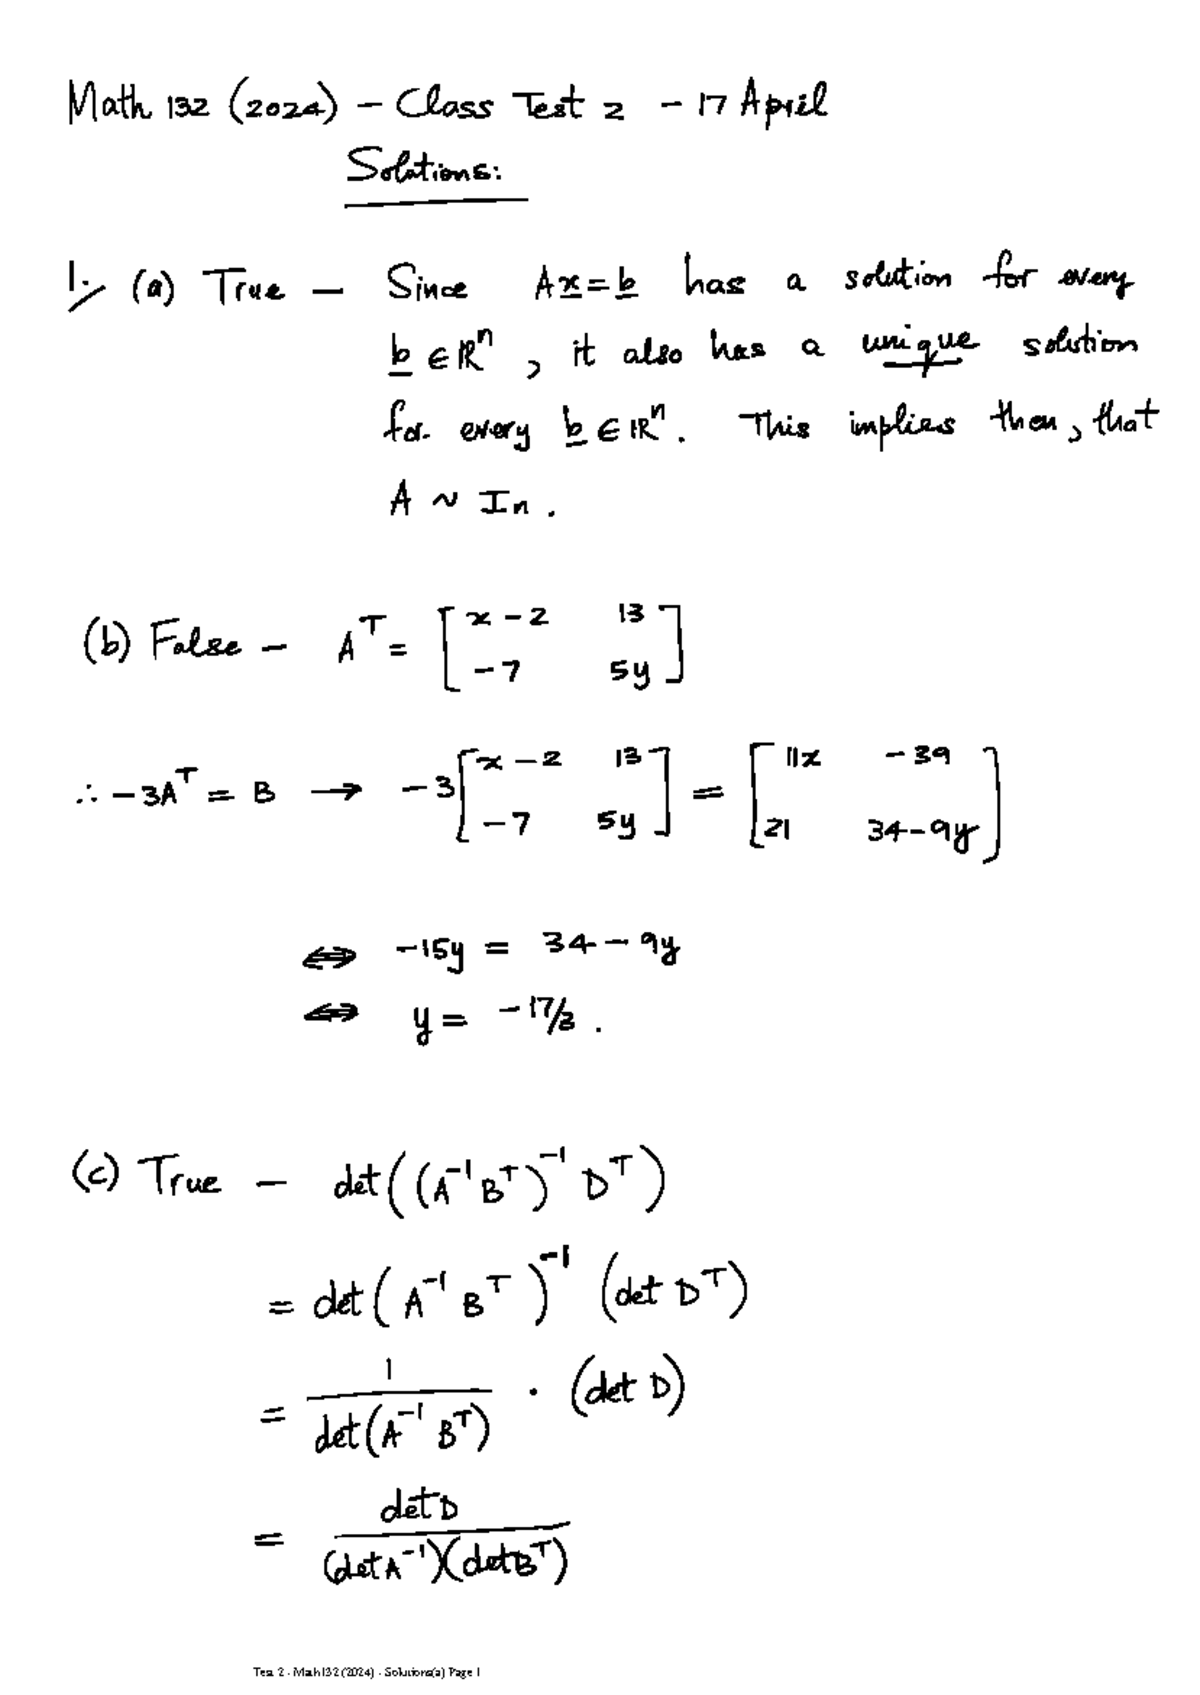 Math 132 (2024) – Class Test 2 – 17 April
Solutions:
1. (a) True – Since Ax = b has a solution for every
b ∈ ℝⁿ, it also has a unique solution
for every b ∈ ℝⁿ. This implies then, that
A ~ In.
(b) False – Aᵀ = [ x – 2 13 ; – 7 5y ]
∴ –3Aᵀ = B → –3 [ x – 2 13 ; – 7 5y ] = [ 11x – 39 ; 21 34 – 9y ]
⇔ –15y = 34 – 9y
⇔ y = –17/3 .
(c) True – det((A⁻¹Bᵀ)⁻¹ Dᵀ)
= det(A⁻¹ Bᵀ)⁻¹ (det Dᵀ)
= 1 / det(A⁻¹ Bᵀ) · (det D)
= det D / (det A⁻¹)(det Bᵀ)
Test 2 - Math132 (2024) - Solutions(a) Page 1